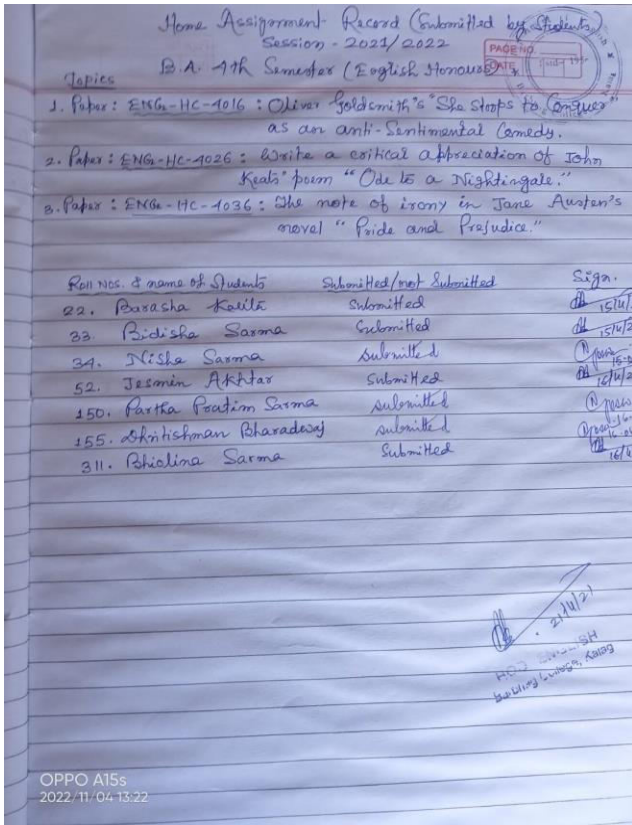 Home Assignment Record (Submitted by Students)
Session - 2021/2022
B.A. 4th Semester (English Honours)
PAGE NO.
DATE
Topics
1. Paper: ENG-HC-4016: Oliver Goldsmith's "She Stoops to Conquer"
as an anti-Sentimental Comedy.
2. Paper: ENG-HC-4026: Write a critical appreciation of John
Keats' poem "Ode to a Nightingale."
3. Paper: ENG-HC-4036: The note of irony in Jane Austen's
novel "Pride and Prejudice."
Roll Nos. & name of Students Submitted/not Submitted Sign.
22. Barasha Kalita Submitted 15/4/
33. Bidisha Sarma Submitted 15/4/2
34. Nisha Sarma Submitted
52. Jesmin Akhtar Submitted 16/4/2
150. Partha Pratim Sarma Submitted
155. Dhritishman Bharadwaj Submitted
311. Bhialina Sarma Submitted 16/4
21/4/21
HOD ENGLISH
College,
OPPO A15s
2022/11/04 13:22